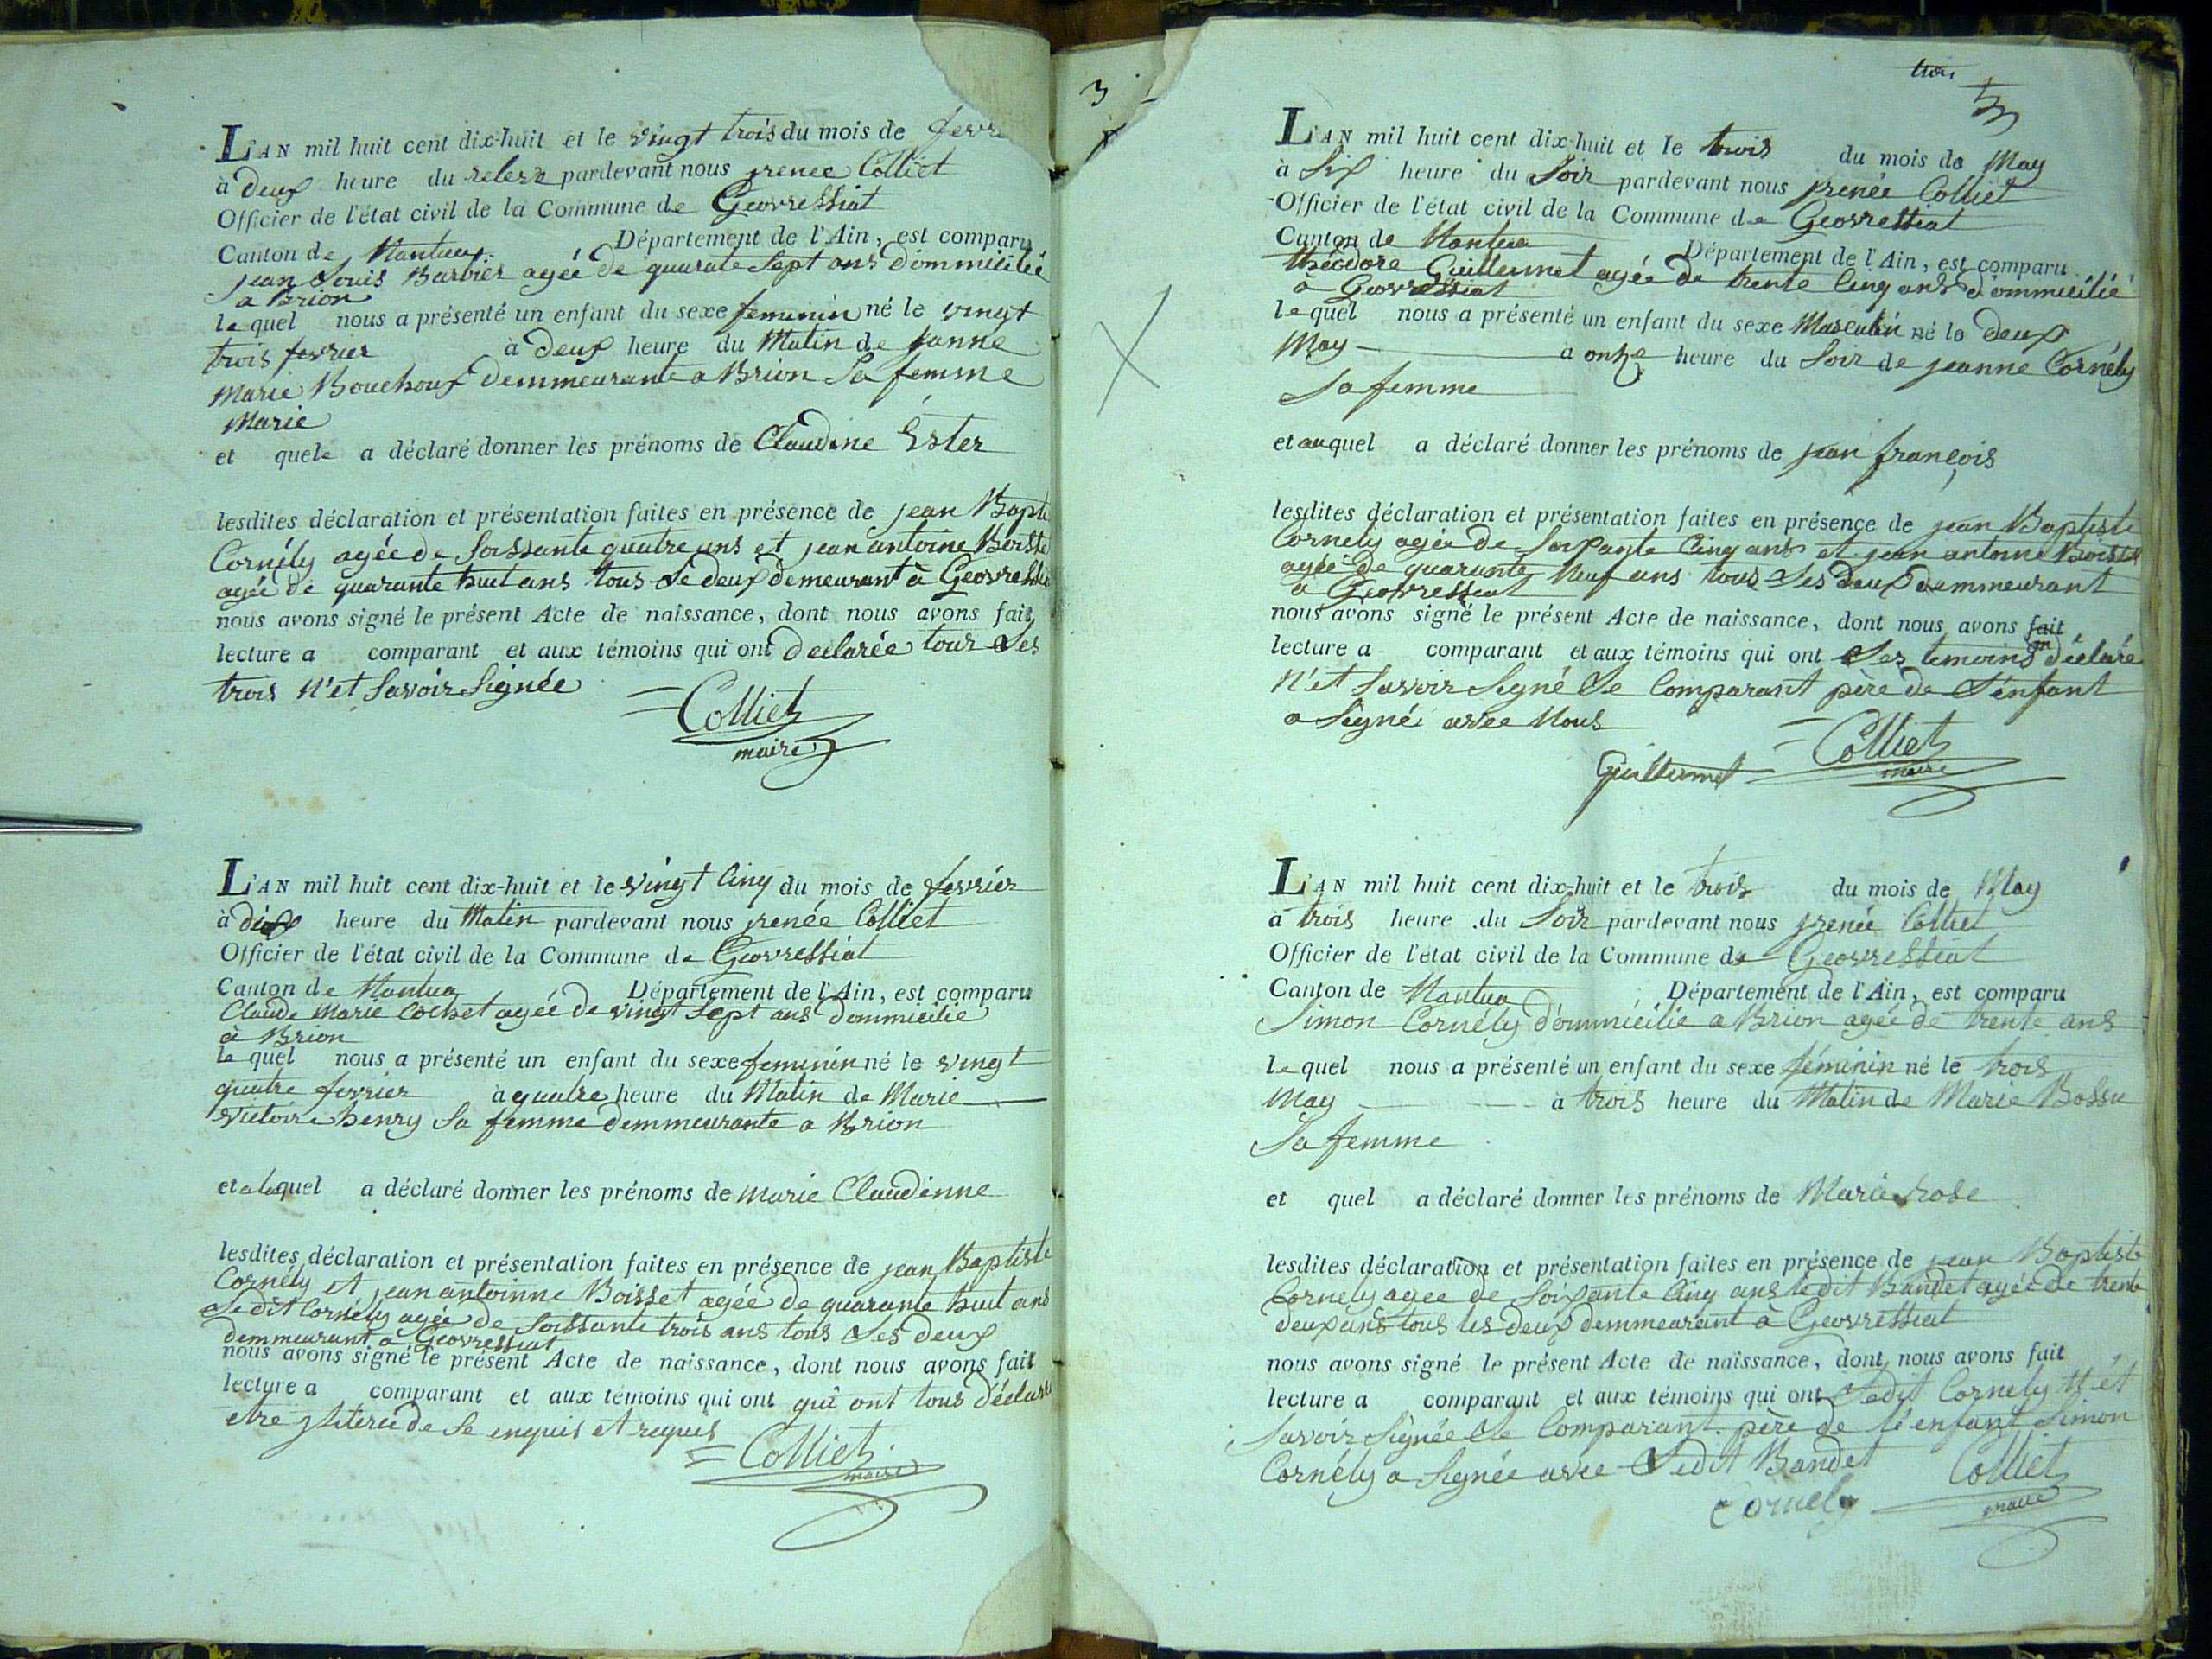 L'AN mil huit cent dix-huit et le vingt trois du mois de fevr
à deux heure du pardevant nous renee Colliet
Officier de l'état civil de la Commune de Geovressiat
Canton de Nantua Département de l'Ain, est comparu
jean Louis Barbier agée de quarate sept ans dommicilié
a Brion
le quel nous a présenté un enfant du sexe feminin né le vingt
trois fevrier à deux heure du Matin de janne
Marie Bouchoux demmeurante a Brion sa femme
Marie
et quele a déclaré donner les prénoms de Claudine Ester
lesdites déclaration et présentation faites en présence de jean Bapti
Cornély agée de soissante quatre ans et jean antoine Boisse
agée de quarante huit ans tous le deux demeurant à Geovressia
nous avons signé le présent Acte de naissance, dont nous avons fait
lecture a comparant et aux témoins qui ont declarée tour les
trois n'et savoir signée
Colliet
maire
L'AN mil huit cent dix-huit et le vingt cinq du mois de fevrier
à dix heure du Matin pardevant nous renée Colliet
Officier de l'état civil de la Commune de Geovressiat
Canton de Nantua Département de l'Ain, est comparu
Claude Marie Cochet agée de vingt sept ans dommicilie
à Brion
le quel nous a présenté un enfant du sexe feminin né le vingt
quatre fevrier à quatre heure du Matin de Marie
victoire henry sa femme demmeurante a Brion
et alaquel a déclaré donner les prénoms de marie Claudinne
lesdites déclaration et présentation faites en présence de jean Baptiste
Cornély et jean antoinne Boisset agée de quarante huit ans
ledit Cornely agée de soissante trois ans tous les deux
demmeurant a Geovressiat
nous avons signé le présent Acte de naissance, dont nous avons fait
lecture a comparant et aux témoins qui ont qui ont tous déclaré
etre de se enquis et requis
Colliet
maire
3
trois
3
L'AN mil huit cent dix-huit et le trois du mois de May
à six heure du soir pardevant nous renée Colliet
Officier de l'état civil de la Commune de Geovressiat
Canton de Nantua Département de l'Ain, est comparu
théodore Guillermet agée de trente cinq ans dommicilié
a Geovressiat
le quel nous a présenté un enfant du sexe Masculin né le deux
May a onze heure du soir de jeanne Cornély
sa femme
et auquel a déclaré donner les prénoms de jean françois
lesdites déclaration et présentation faites en présence de jean Baptiste
Cornely agée de soixante cinq ans et jean antoine Boisset
agée de quarante neuf ans tous les deux demmeurant
a Geovressiat
nous avons signé le présent Acte de naissance, dont nous avons fait
lecture a comparant et aux témoins qui ont les temoins on déclaré
n'et savoir signé le comparant père de l'enfant
a signé avec nous
Guillermet
Colliet
maire
L'AN mil huit cent dix-huit et le trois du mois de May
à trois heure du soir pardevant nous renée Colliet
Officier de l'état civil de la Commune de Geovressiat
Canton de Nantua Département de l'Ain, est comparu
Simon Cornély dommicilié a Brion agée de trente ans
le quel nous a présenté un enfant du sexe féminin né le trois
May à trois heure du Matin de Marie Bossu
sa femme
et quel a déclaré donner les prénoms de Marie rose
lesdites déclaration et présentation faites en présence de jean Baptiste
Cornely agee de soixante cinq ans ledit Bandet agée de trente
deux ans tous les deux demmeurant à Geovressiat
nous avons signé le présent Acte de naissance, dont nous avons fait
lecture a comparant et aux témoins qui ont ledit Cornely n'ét
savoir signée le comparant père de l'enfant Simon
Cornély a signée avec ledit Bandet
Cornely
Colliet
maire